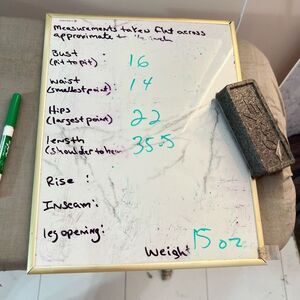 measurements taken flat across
approximate to ½ inch
Bust :
(pit to pit) 16
waist :
(smallest point) 14
Hips
(largest point) 22
length
(shoulder to hem) 35.5
Rise :
Inseam :
leg opening :
Weight 15 oz